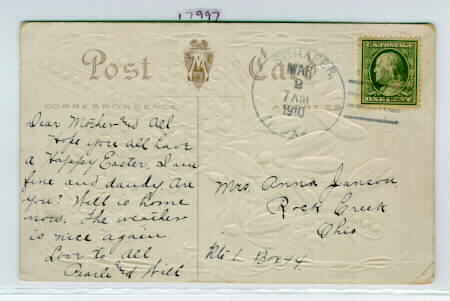 17997
Post Card
CORRESPONDENCE
MAR
8
7 AM
1910
Dear Mother and All
Hope you all have
a Happy Easter, I am
fine and dandy, Are
you? Will is home
now. The weather
is nice again
Love to All
Pearle and Will
Mrs. Anna Janson
Rock Creek
Ohio
Rte 1. Box 44